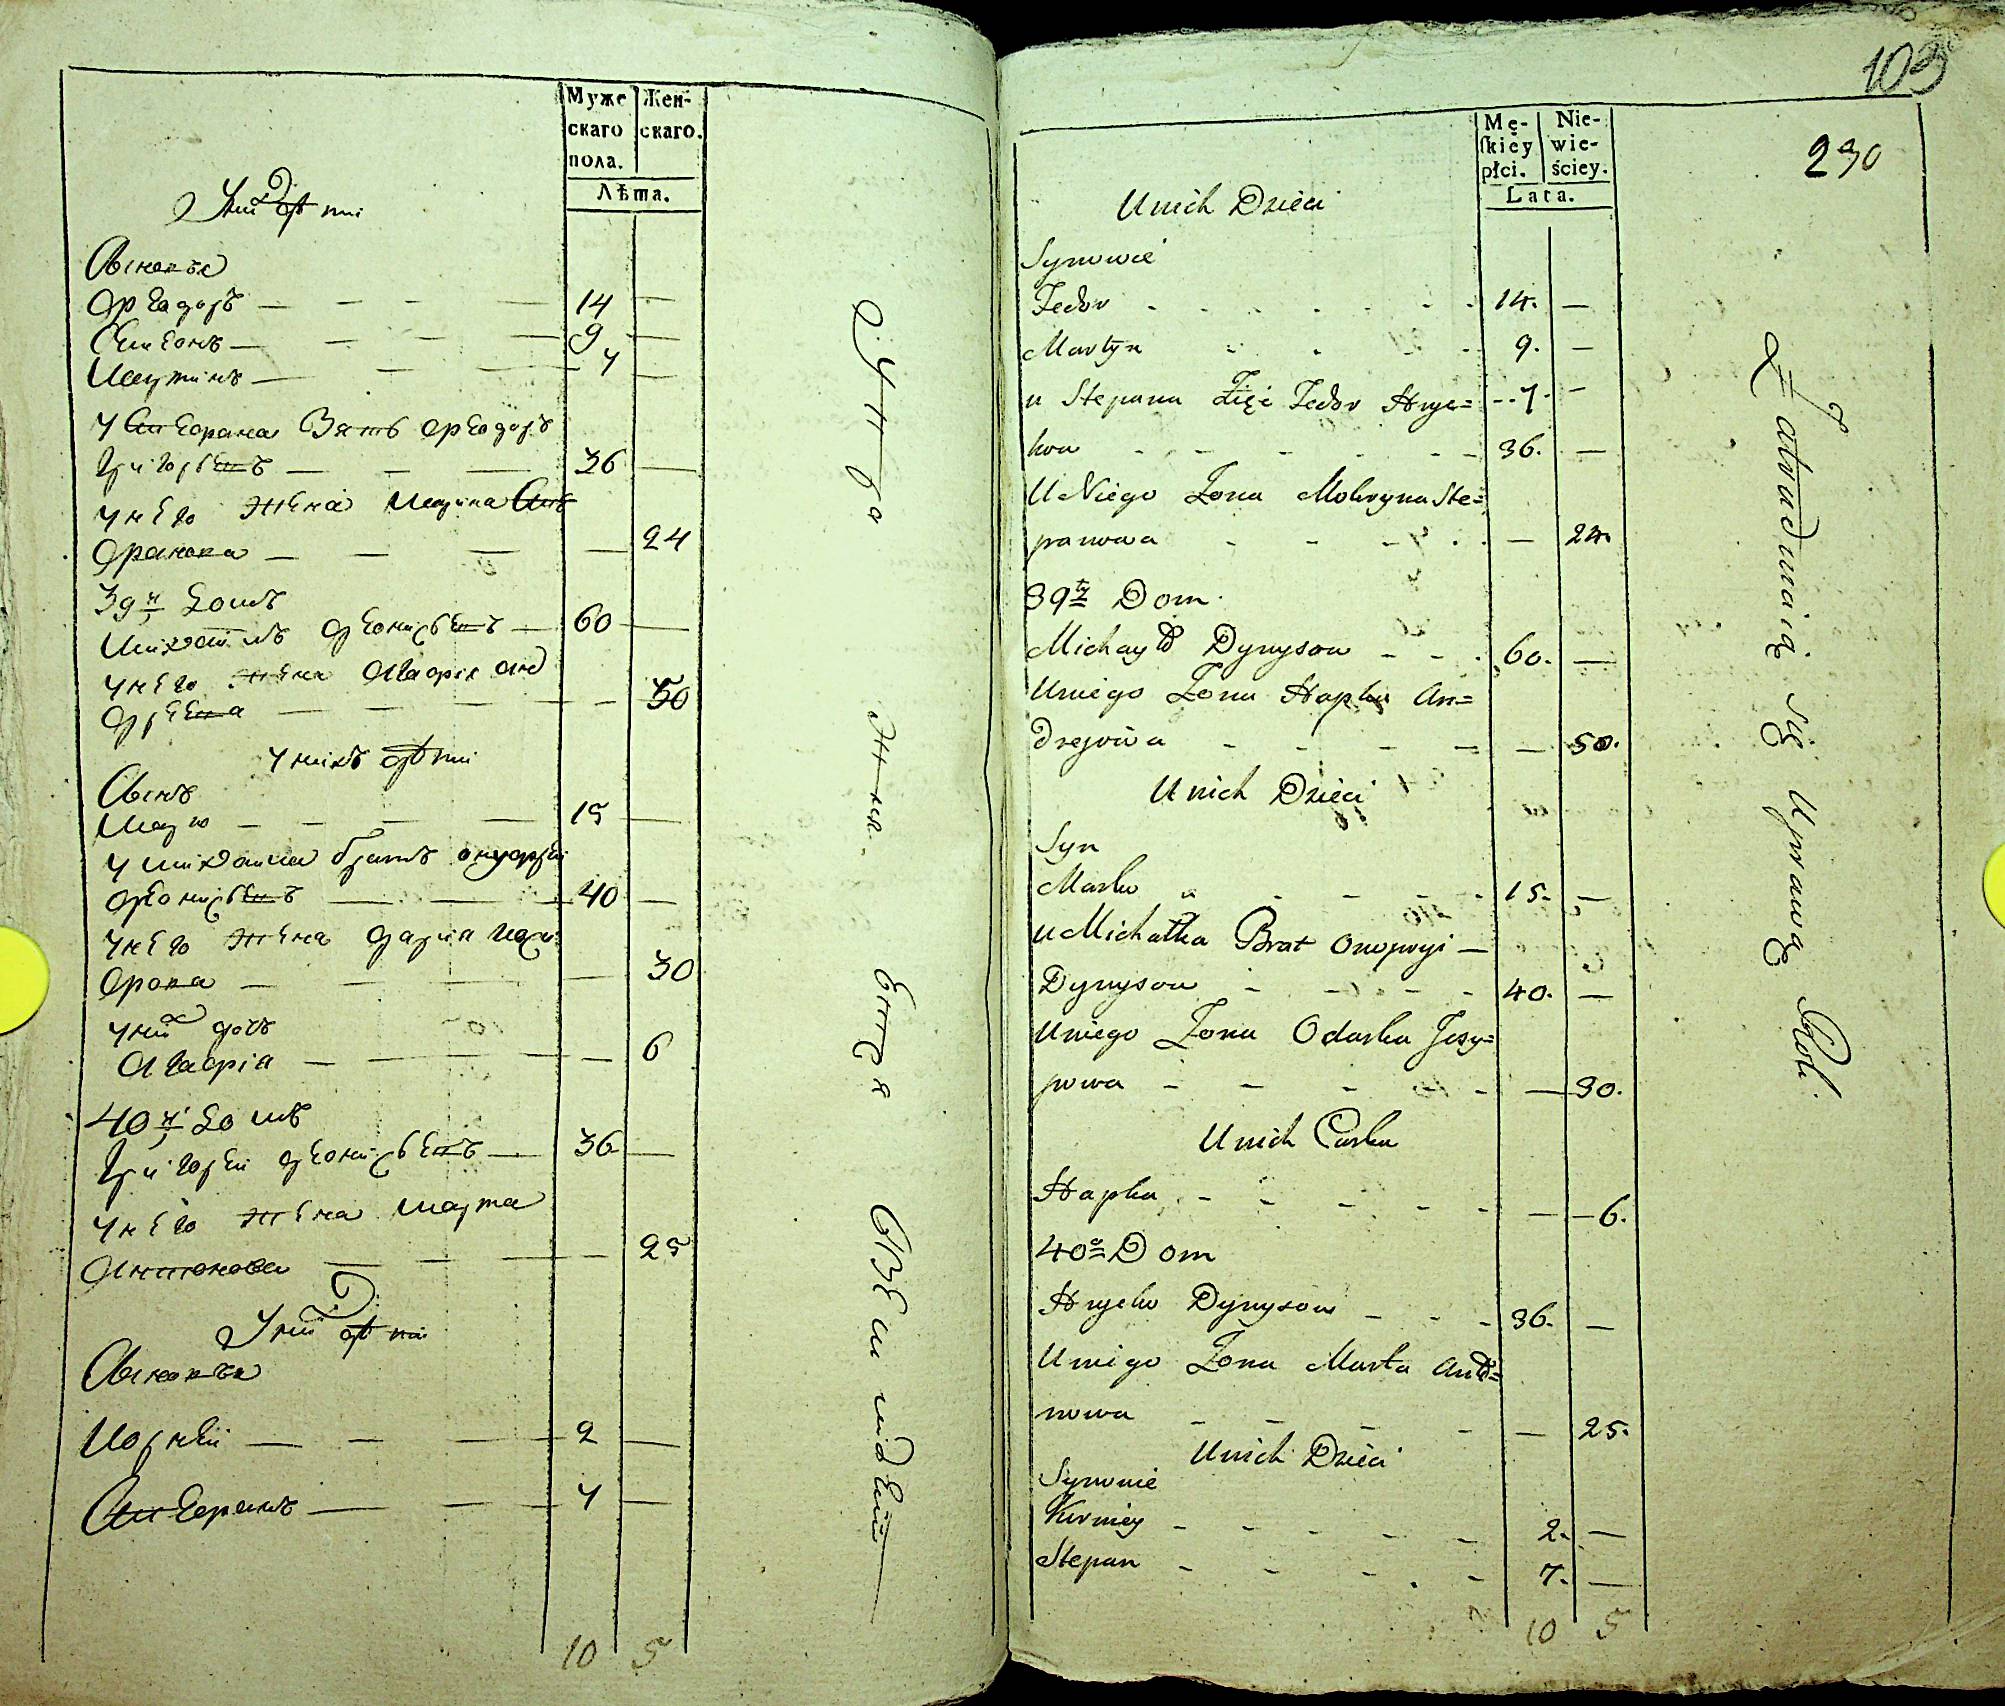 Муже
скаго
пола.
Жен-
скаго.
Лѣта.
дѣти
Сыновья
Феодоръ — — — — 14 —
Симеонъ — — — — 9 —
Мартинъ — — — — 7 —
У Стефана Зять Феодоръ
Григорьевъ — — — 36 —
У него жена Марина Сте
фанова — — — — 24
39й домъ
Михайлъ Денисьевъ — 60 —
У него жена Агафія Ан
дреева — — — — 50
У нихъ дѣти
Сынъ
Марко — — — — 15 —
У Михайла братъ Онуфрій
Денисьевъ — — — 40 —
У него жена Дарія
фова — — — — 30
У них дочь
Агафія — — — — 6
40й домъ
Григорей Денисьевъ — 36 —
У него жена Марта
Антонова — — — — 25
дѣти
Сыновья
Корней — — — 2 —
Стефанъ — — — 7 —
10 5
земли
103
Mę-
skiey
płci.
Nie-
wie-
ściey.
Lata.
230
Unich Dzieci
Synowie
Fedor - - - - - - 14. —
Martyn - - - 9. —
u Stepana Zięć Fedor Hryc= - - 7. —
kow - - - - - - 36. —
U Niego Zona Mokryna Ste=
panowa - - - - — 24.
39ty Dom
Michayło Dynysow - - - 60. —
Uniego Zona Hapka An=
drejowa - - - - — 50.
Unich Dzieci
Syn
Marko - - - - - 15. —
u Michałka Brat Onopryi —
Dynysow - - - - 40. —
Uniego Zona Odarka Josy=
powa - - - - - — 30.
Unich Curka
Hapka - - - - - — 6.
40y Dom
Hryćko Dynysow - - - 36. —
Uniego Zona Marta Antó=
nowa - - - - — 25.
Unich Dzieci
Synowie
Korniey - - - - - - 2. —
Stepan - - - - - 7. —
10 5
Zatrudniaią się Uprawą Roli.